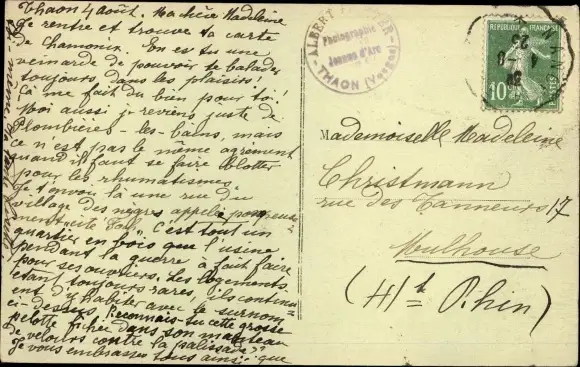 Thaon 4 Août. Ma chère Madeleine
Je rentre et trouve ta carte
de Chamonix. En es tu une
veinarde de pouvoir te balader
toujours dans les plaisirs!
Ça me fait du bien pour toi!
Moi aussi je reviens juste de
Plombières-les-bains, mais
ce n'est pas le même agrément
quand il faut se faire
pour les rhumatismes.
Je t'envoie là une rue du
village des nègres appelé pompeuse-
ment "cité
quartier en bois que l'usine
pendant la guerre a fait faire
pour ses ouvriers. Les logements
étant toujours rares, ils continu-
ent d'y habiter avec le surnom
ci-dessus. Reconnais-tu cette grosse
pelotte fichée dans son manteau
de velours contre la palissade?
Je vous embrasse tous ainsi que
ALBERT
Photographie
Jeanne d'Arc
THAON (Vosges)
RÉPUBLIQUE FRANÇAISE
10
POSTES
Mademoiselle Madeleine
Christmann
rue des Tanneurs 17
Mulhouse
(Ht Rhin)